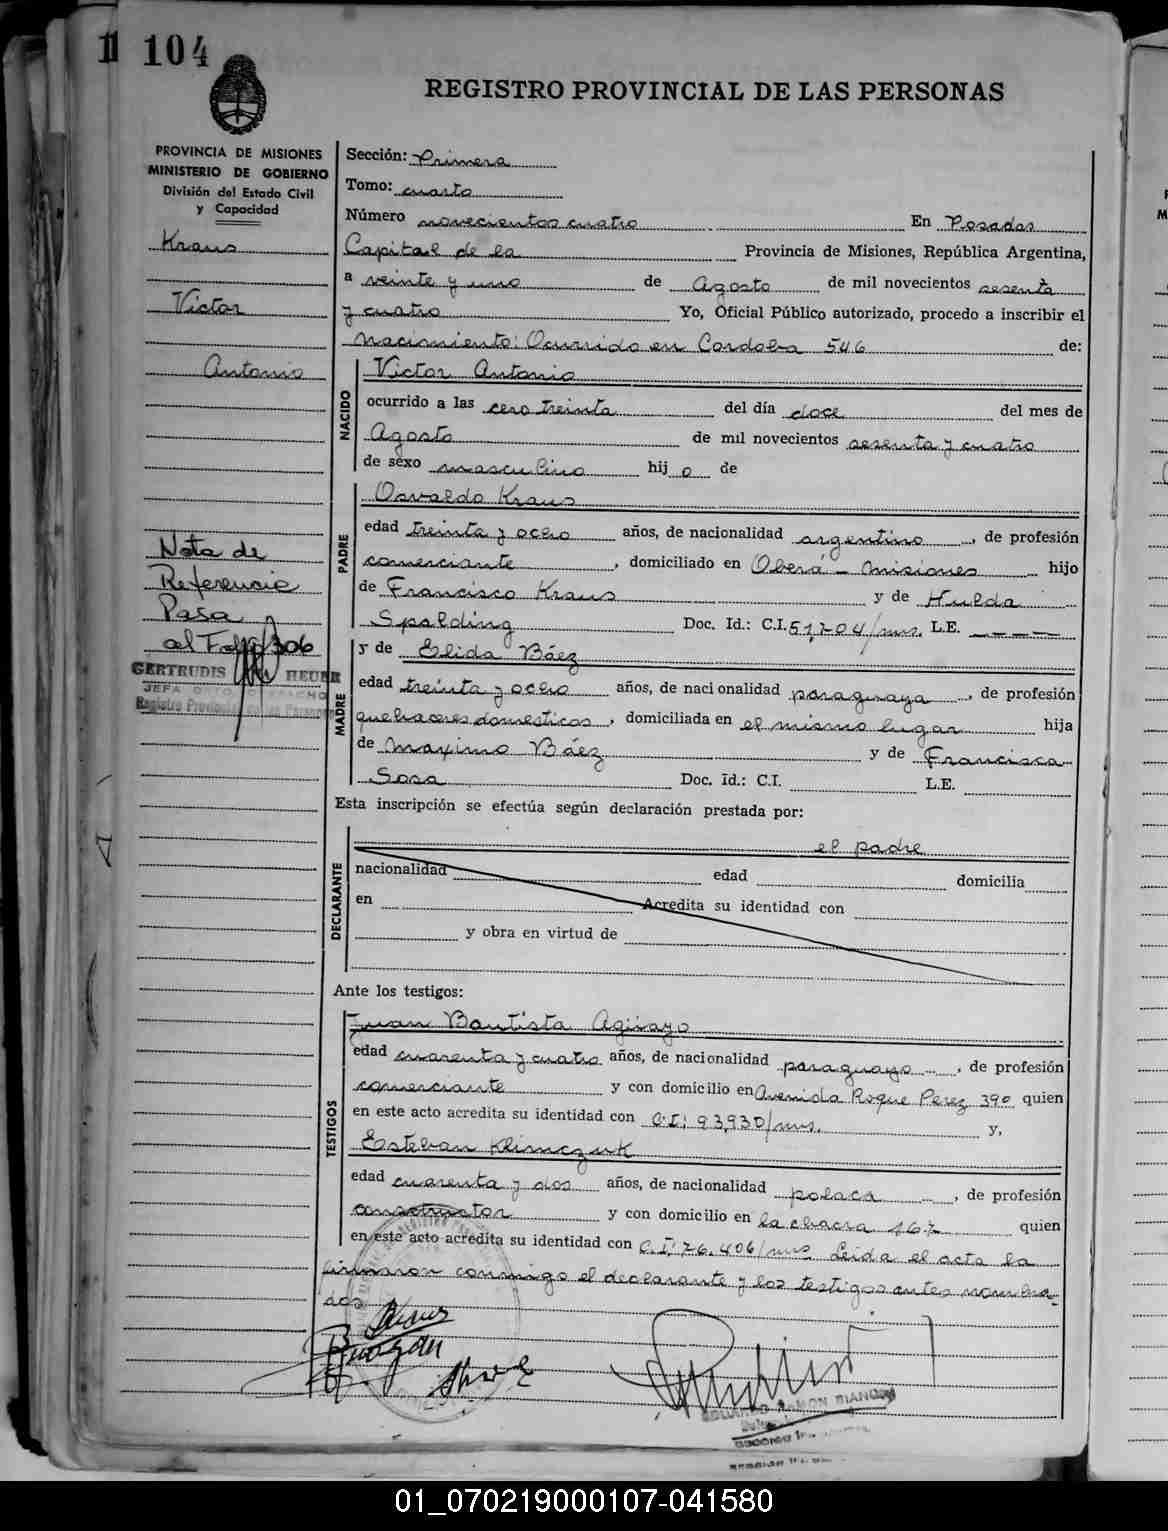 104
REGISTRO PROVINCIAL DE LAS PERSONAS
PROVINCIA DE MISIONES
MINISTERIO DE GOBIERNO
División del Estado Civil
y Capacidad
Kraus
Victor
Antonio
Nota de
Referencia
Pasa
al Folio 306
GERTRUDIS HEUER
JEFA DPTO.
Registro Provincial de las Personas
Sección: Primera
Tomo: cuarto
Número novecientos cuatro En Posadas
Capital de la Provincia de Misiones, República Argentina,
a veinte y uno de Agosto de mil novecientos sesenta
y cuatro Yo, Oficial Público autorizado, procedo a inscribir el
Nacimiento: Ocurrido en Cordoba 546 de:
NACIDO
Victor Antonio
ocurrido a las cero treinta del día doce del mes de
Agosto de mil novecientos sesenta y cuatro
de sexo masculino hijo de
PADRE
Osvaldo Kraus
edad treinta y ocho años, de nacionalidad argentino, de profesión
comerciante, domiciliado en Oberá - Misiones hijo
de Francisco Kraus y de Hulda
Spalding Doc. Id.: C.I. 51,204/mns. L.E. ----
MADRE
y de Elida Báez
edad treinta y ocho años, de nacionalidad paraguaya, de profesión
quehaceres domesticos, domiciliada en el mismo lugar hija
de Maximo Báez y de Francisca
Sosa Doc. Id.: C.I. L.E.
Esta inscripción se efectúa según declaración prestada por:
DECLARANTE
el padre
nacionalidad edad domicilia
en Acredita su identidad con
y obra en virtud de
Ante los testigos:
TESTIGOS
Juan Bautista Agüayo
edad cuarenta y cuatro años, de nacionalidad paraguayo, de profesión
comerciante y con domicilio en Avenida Roque Perez 390 quien
en este acto acredita su identidad con C.I: 93,930/mns. y,
Esteban Klimczuk
edad cuarenta y dos años, de nacionalidad polaca, de profesión
constructor y con domicilio en la chacra 167 quien
en este acto acredita su identidad con C.I: 76.406/mns. Leida el acta la
firmaron conmigo el declarante y los testigos antes nombra-
dos
RAMON BIANCHI
01_070219000107-041580